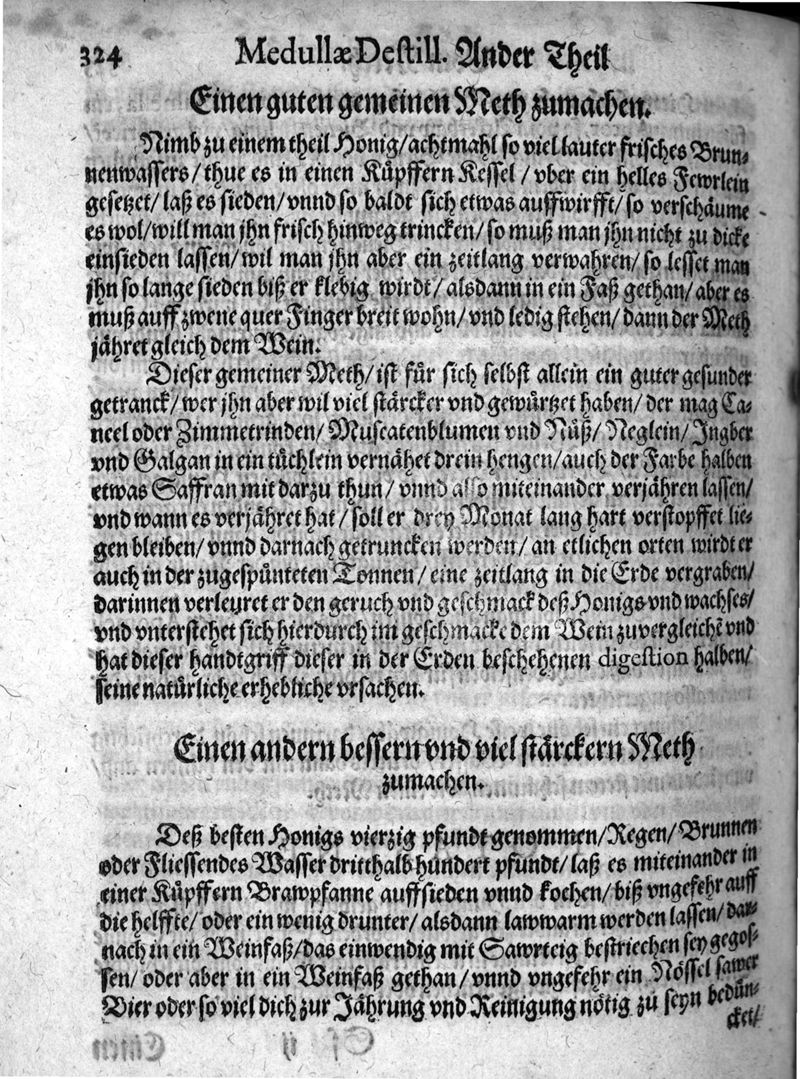 324 Medullæ Destill. Ander Theil
Einen guten gemeinen Meth zumachen.
Nimb zu einem theil Honig/ achtmahl so viel lauter frisches Brun-
nenwassers/ thue es in einen Küpffern Kessel / vber ein helles Fewrlein
gesetzet/ laß es sieden/ vnnd so baldt sich etwas auffwirfft/ so verschäume
es wol/ will man jhn frisch hinweg trincken/ so muß man jhn nicht zu dicke
einsieden lassen/ wil man jhn aber ein zeitlang verwahren/ so lesset man
jhn so lange sieden biß er klebig wirdt/ alsdann in ein Faß gethan/ aber es
muß auff zwene quer Finger breit wohn/ vnd ledig stehen/ dann der Meth
jähret gleich dem Wein.
Dieser gemeiner Meth/ ist für sich selbst allein ein guter gesunder
getranck/ wer jhn aber wil viel stärcker vnd gewürtzet haben/ der mag Ca-
neel oder Zimmetrinden/ Muscatenblumen vnd Nüß/ Neglein/ Jngber
vnd Galgan in ein tüchlein vernähet drein hengen/ auch der Farbe halben
etwas Saffran mit darzu thun/ vnnd also miteinander verjähren lassen/
vnd wann es verjähret hat/ soll er drey Monat lang hart verstopffet lie-
gen bleiben/ vnnd darnach getruncken werden/ an etlichen orten wirdt er
auch in der zugespünteten Tonnen/ eine zeitlang in die Erde vergraben/
darinnen verleuret er den geruch vnd geschmack deß Honigs vnd wachses/
vnd vnterstehet sich hierdurch im geschmacke dem Wein zuvergleichē vnd
hat dieser handtgriff dieser in der Erden beschehenen digestion halben/
seine natürliche erhebliche vrsachen.
Einen andern bessern vnd viel stärckern Meth
zumachen.
Deß besten Honigs vierzig pfundt genommen/ Regen/ Brunnen
oder Fliessendes Wasser dritthalb hundert pfundt/ laß es miteinander in
einer Küpffern Brawpfanne auffsieden vnnd kochen/ biß vngefehr auff
die helffte/ oder ein wenig drunter/ alsdann lawwarm werden lassen/ dar-
nach in ein Weinfaß/ das einwendig mit Sawrteig bestriechen sey gegos-
sen/ oder aber in ein Weinfaß gethan/ vnnd vngefehr ein Nössel sawer
Bier oder so viel dich zur Jährung vnd Reinigung nötig zu seyn bedün-
cket/